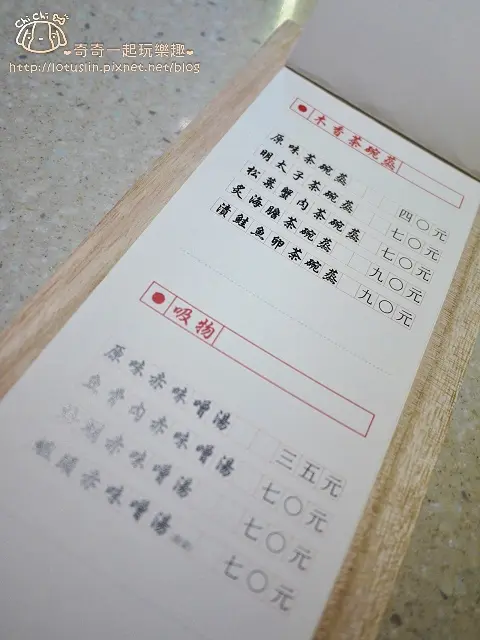 Chi Chi
奇奇一起玩樂趣
http://lotuslin.pixnet.net/blog
木香茶碗蒸
原味茶碗蒸 四〇元
明太子茶碗蒸 七〇元
松葉蟹肉茶碗蒸 七〇元
炙海膽茶碗蒸 九〇元
漬鮭魚卵茶碗蒸 九〇元
吸物
原味赤味噌湯 三五元
魚骨肉赤味噌湯 七〇元
赤味噌湯 七〇元
赤味噌湯 七〇元